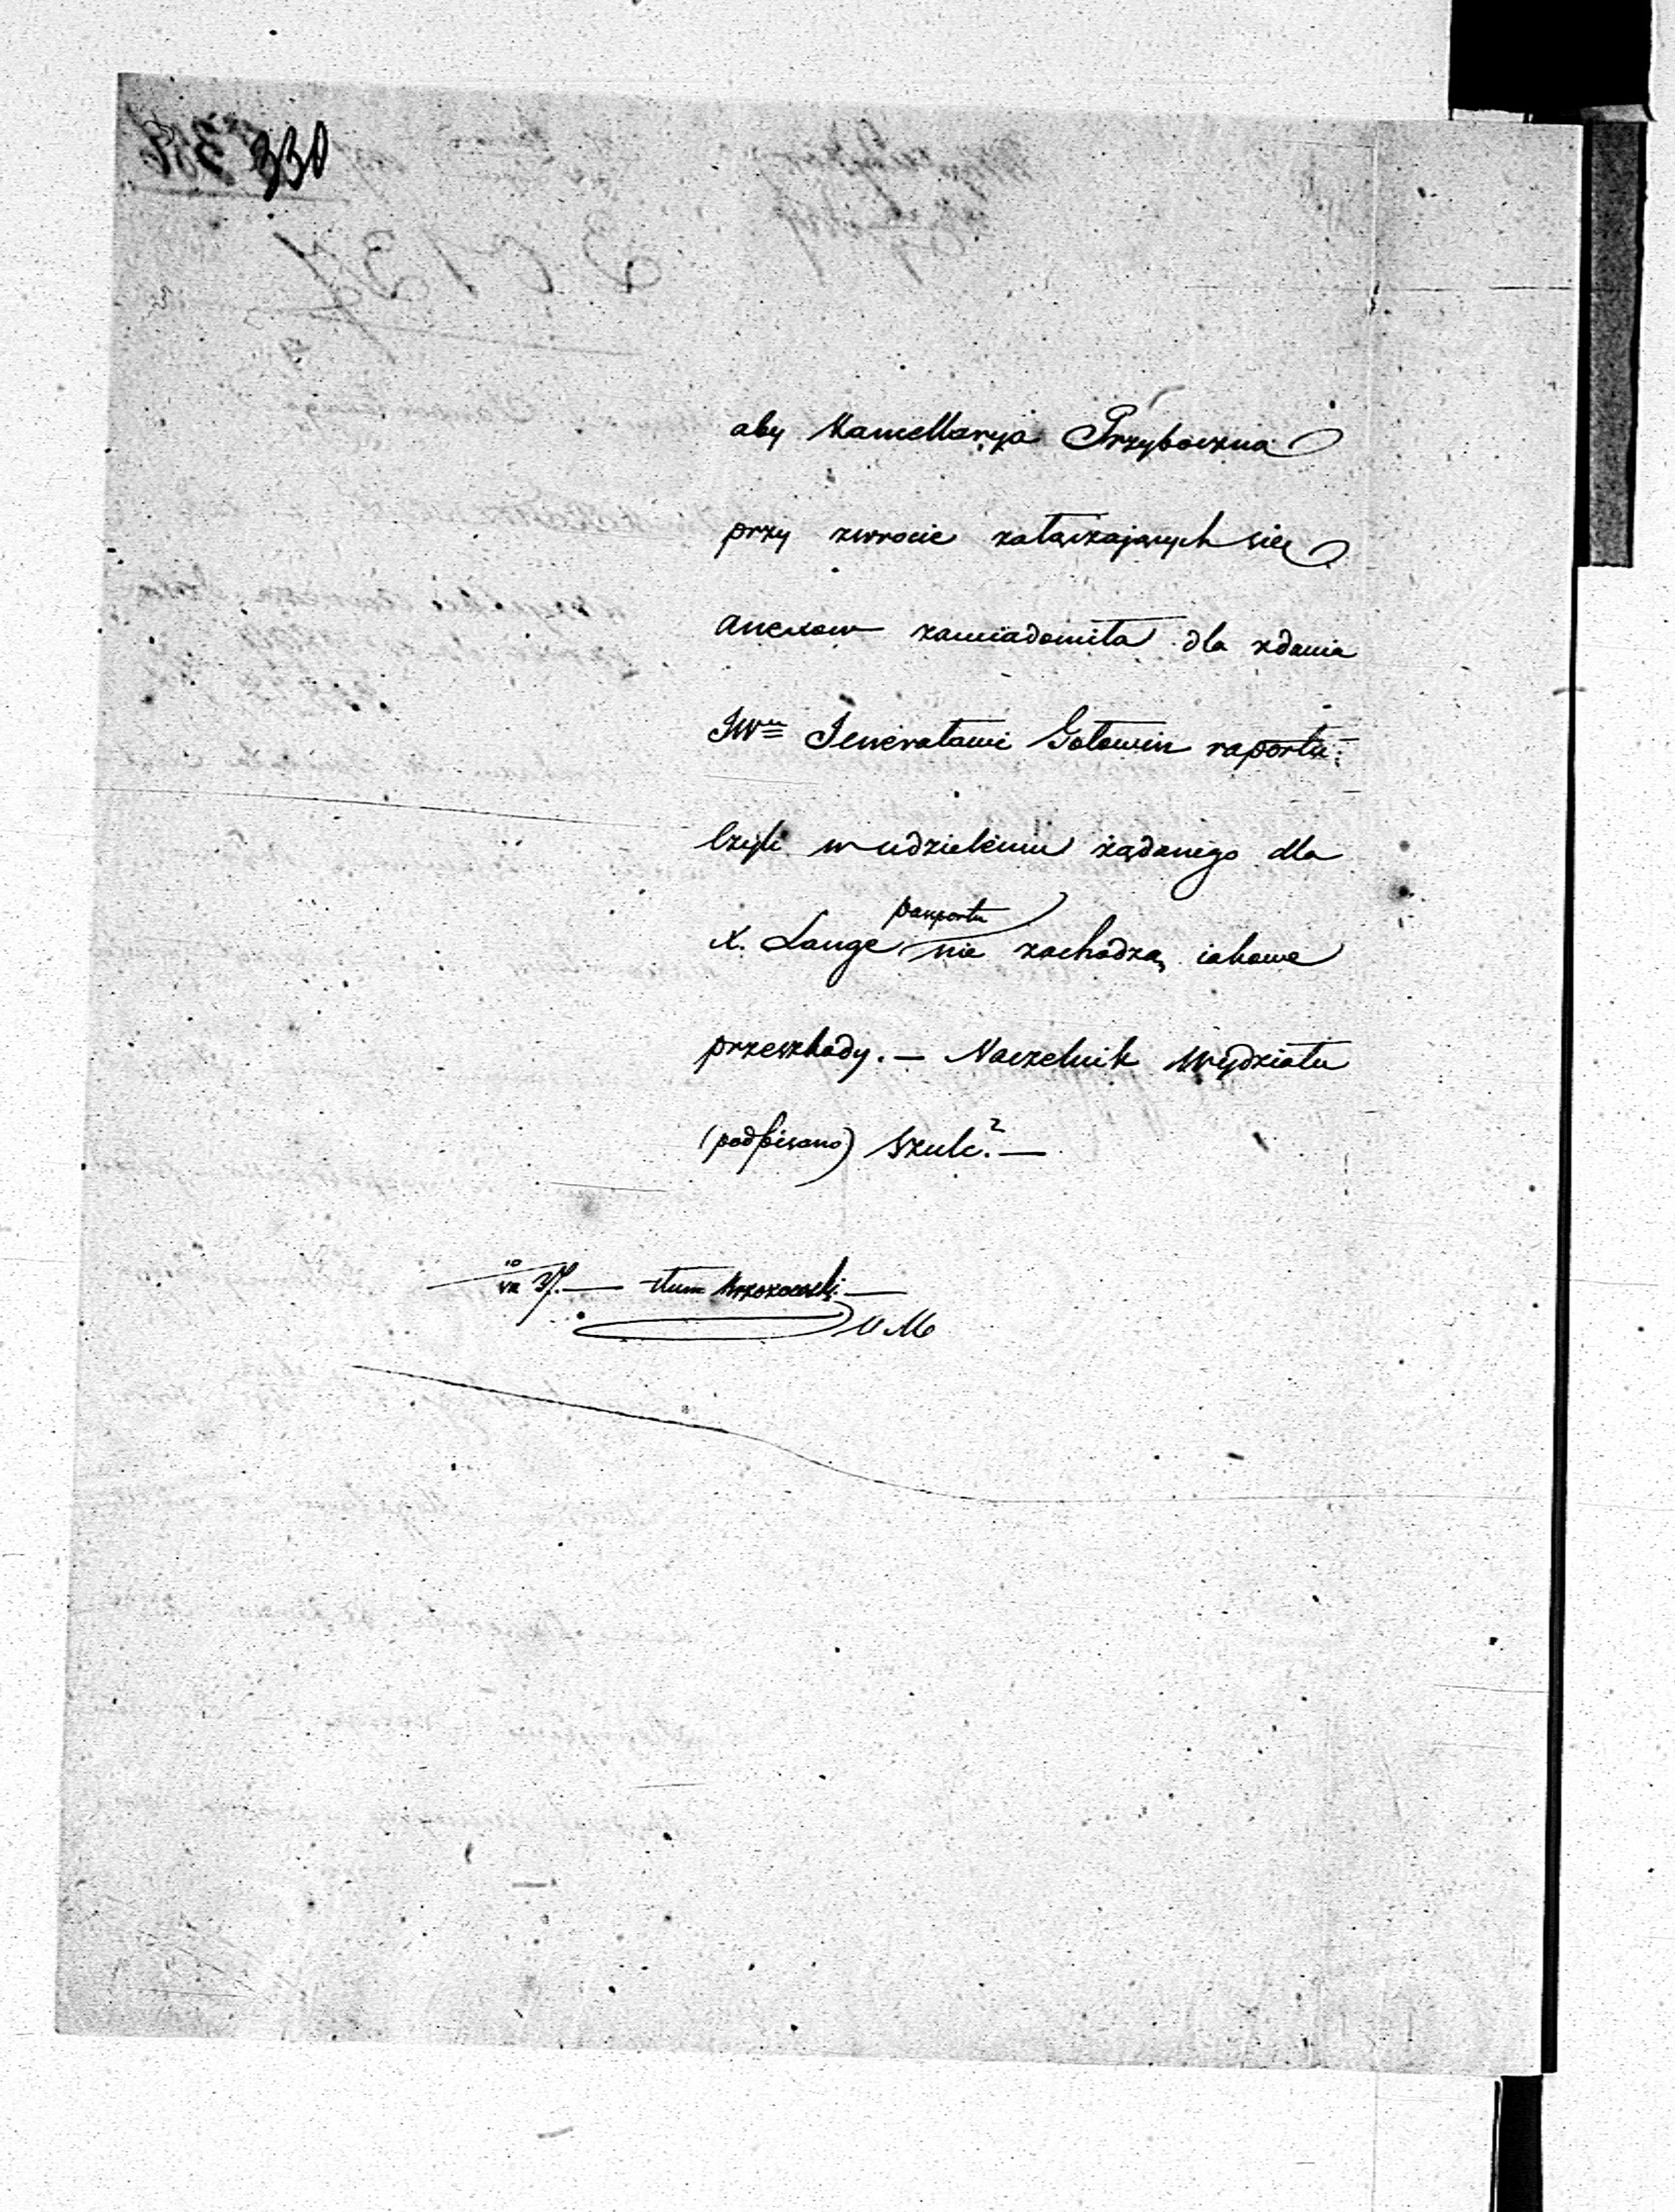 330
aby Kancellaryja Przyboczna
przy zwrocie załączających się
anexow zawiadomiła dla zdania
JWu Jenerałowi Gołowin raportu:
czyli w udzieleniu żądanego dla
paszportu
X. Lange nie zachodzą iakowe
przeszkody. — Naczelnik Wydziału
(podpisano) Szulc. —